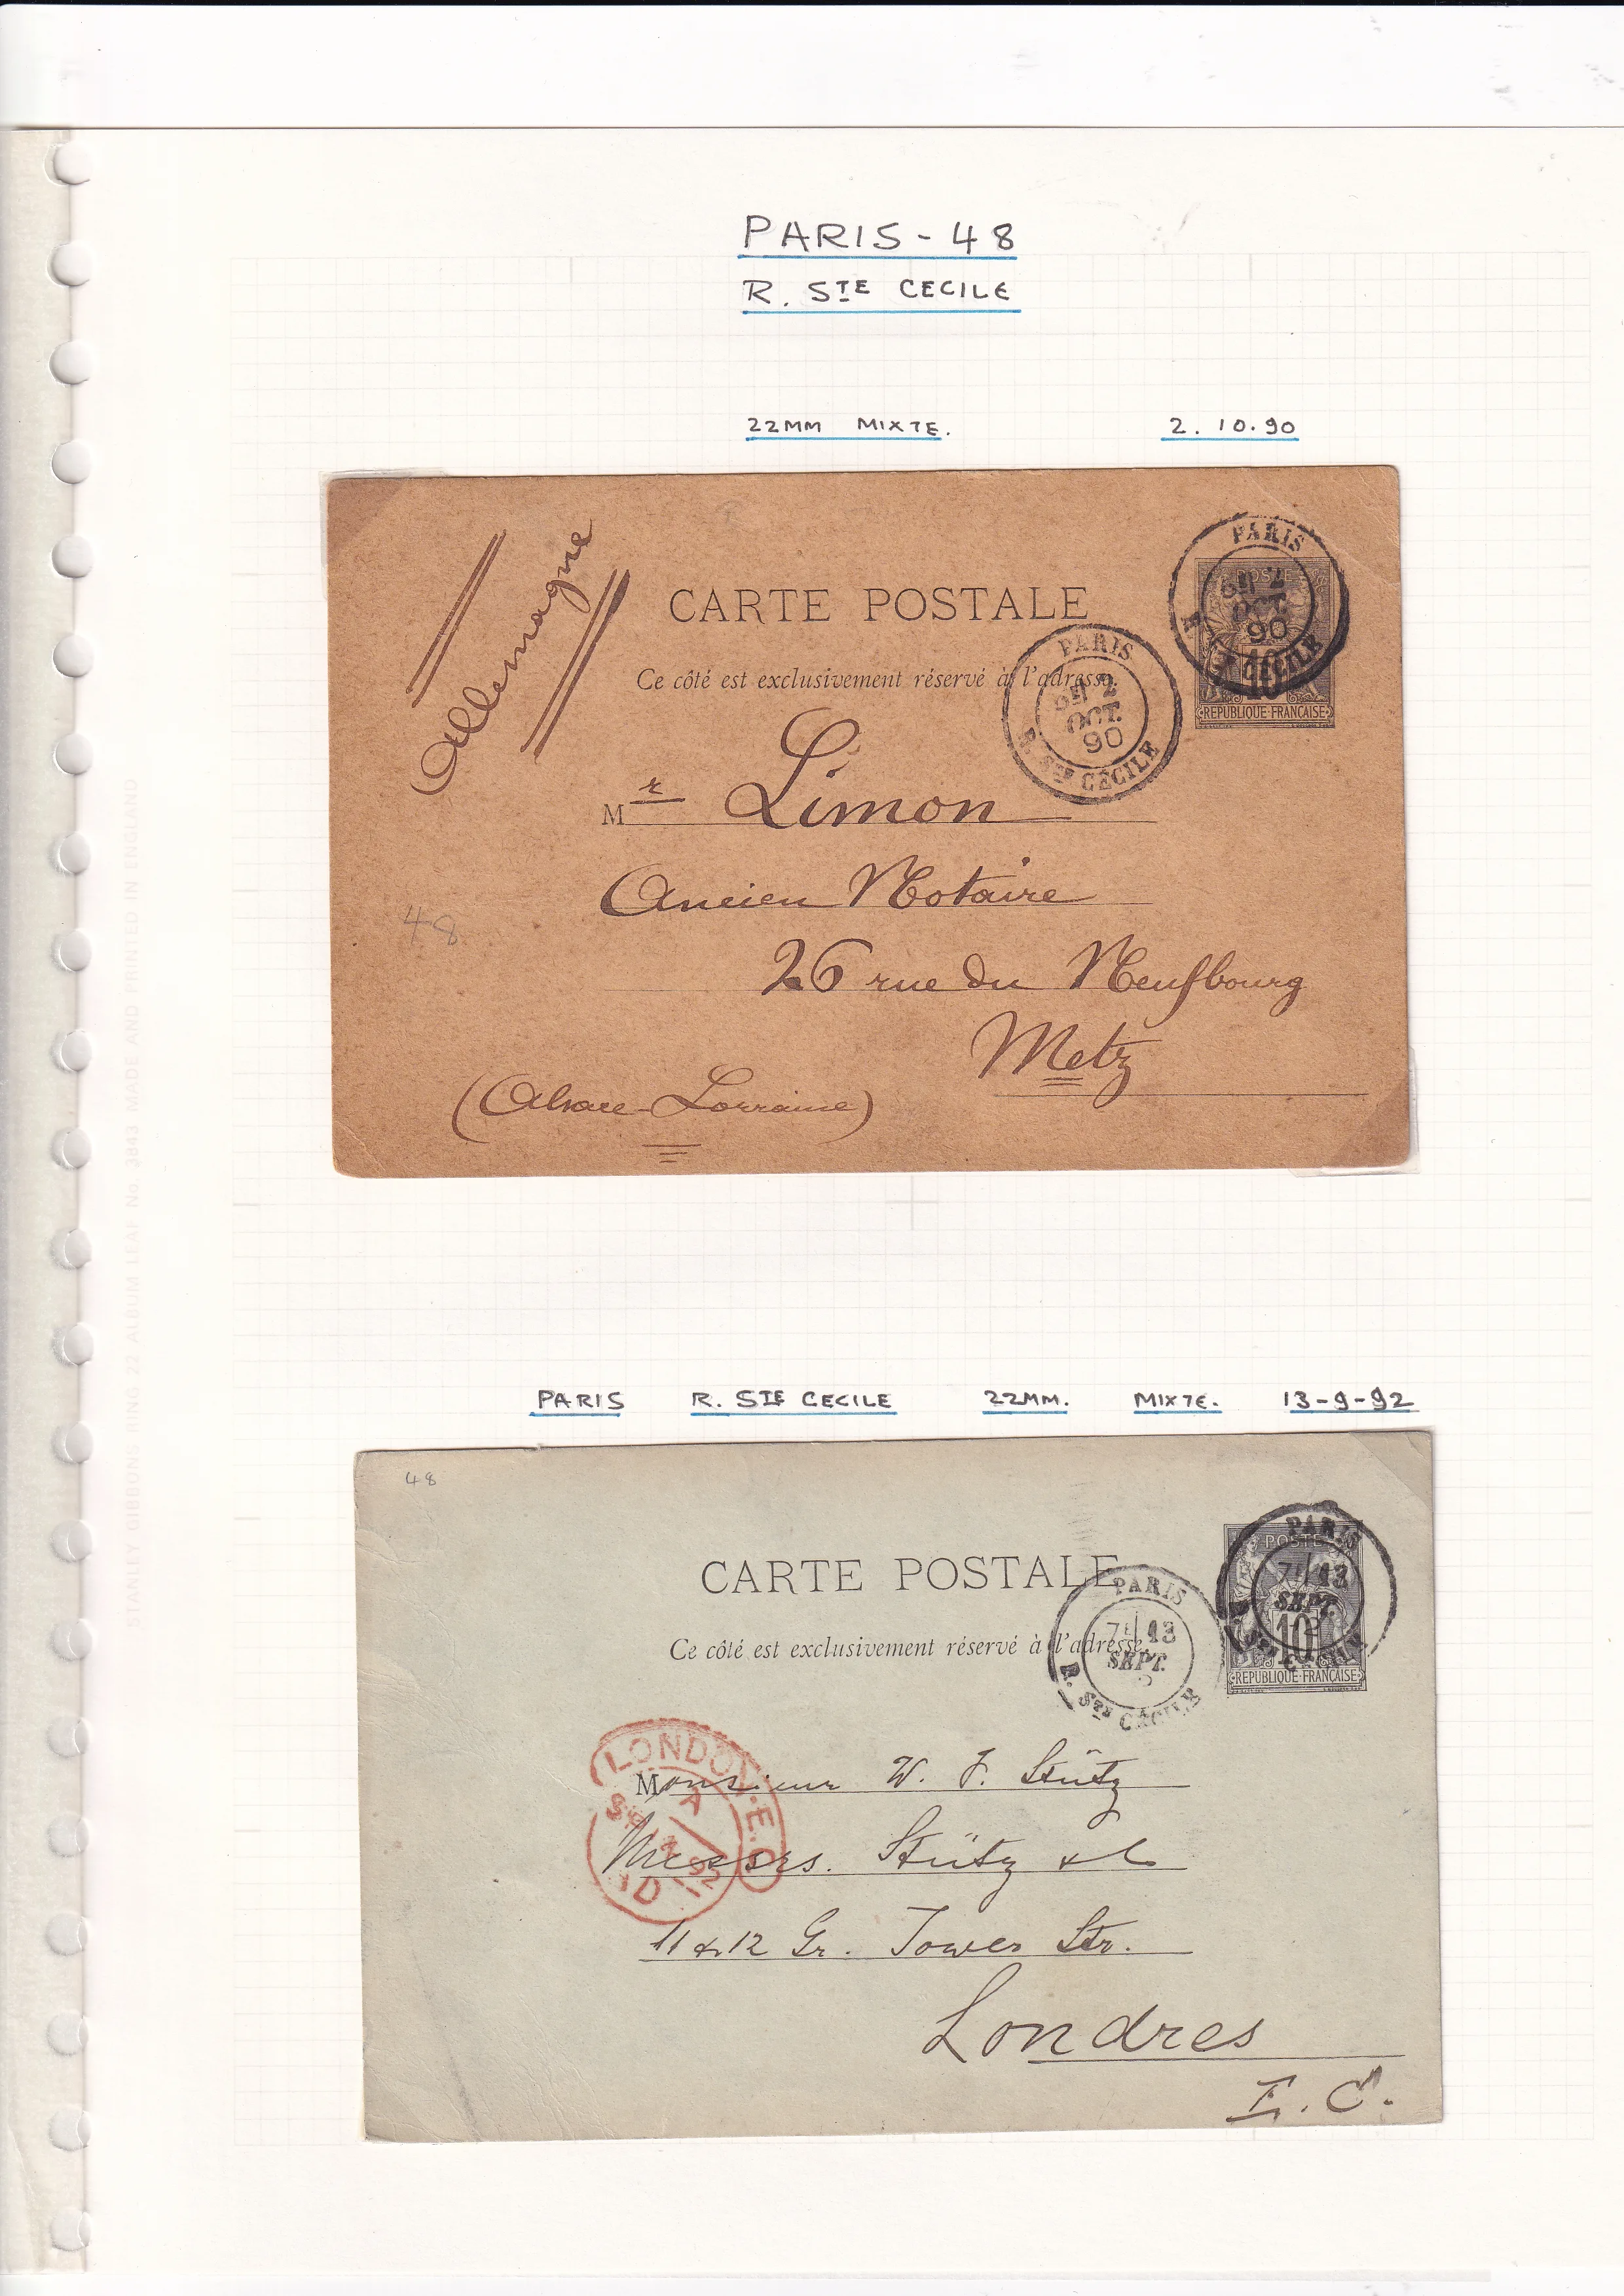 PARIS - 48
R. STE CECILE
22MM MIXTE. 2.10.90
Allemagne
CARTE POSTALE
Ce côté est exclusivement réservé à l'adresse.
PARIS
2
OCT.
90
R. STE CÉCILE
PARIS
2
OCT.
90
R. CÉCILE
POSTE
10
REPUBLIQUE FRANÇAISE
Mr Limon
Ancien Notaire
48
26 rue du Neufbourg
Metz
(Alsace-Lorraine)
STANLEY GIBBONS RING 22 ALBUM LEAF No. 3843 MADE AND PRINTED IN ENGLAND
PARIS R. STE CECILE 22MM. MIXTE. 13-9-92
48
CARTE POSTALE
Ce côté est exclusivement réservé à l'adresse.
PARIS
13
SEPT.
R. STE CÉCILE
PARIS
13
SEPT.
POSTE
10
REPUBLIQUE FRANÇAISE
LONDON. E.C
A
92
Monsieur W. F. Stütz
Messrs. Stütz & Co
11 & 12 Gr. Tower Str.
Londres
E. C.